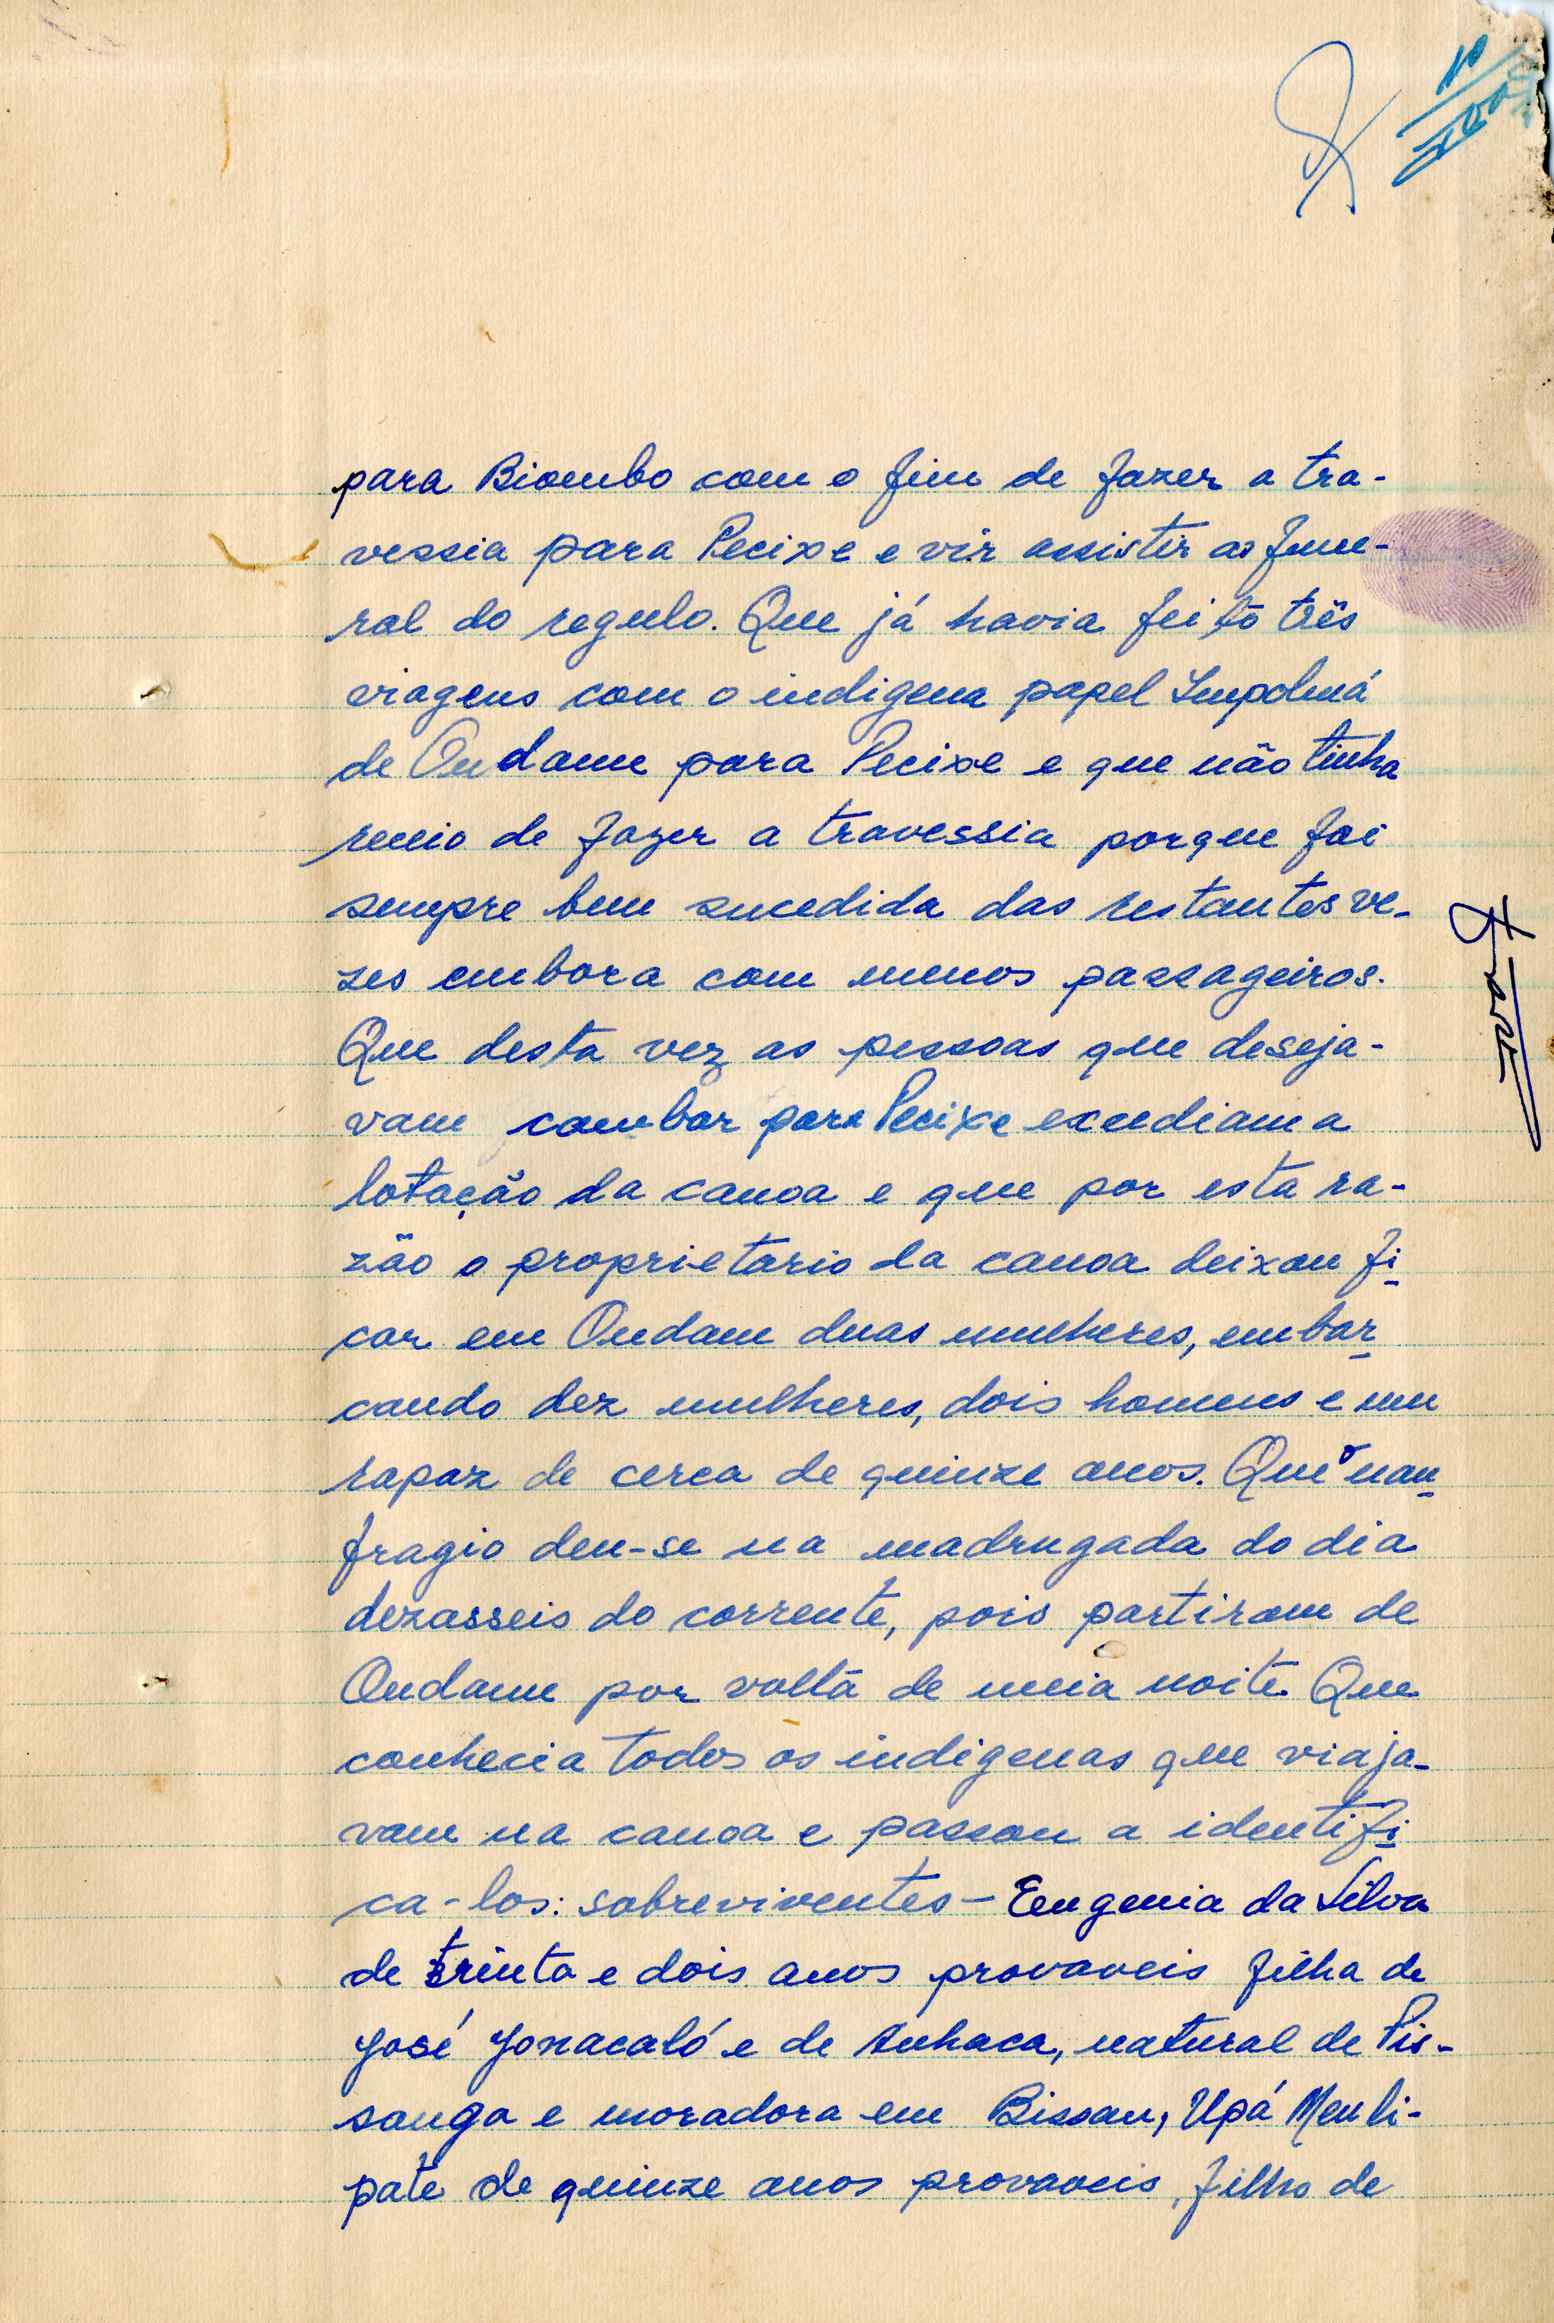 para Biombo com o fim de fazer a tra-
vessia para Pecixe e vir assistir ao fune-
ral do regulo. Que já havia feito três
viagens com o indigena papel Impolmá
de Ondame para Pecixe e que não tinha
receio de fazer a travessia porque foi
sempre bem sucedida das restantes ve-
zes embora com menos passageiros.
Que desta vez as pessoas que deseja-
vam cambar para Pecixe excediam a
lotação da canoa e que por esta ra-
zão o proprietario da canoa deixou fi
car em Ondam duas mulheres, embar
cando dez mulheres, dois homens e um
rapaz de cerca de quinze anos. Que o nau
fragio deu-se na madrugada do dia
dezasseis do corrente, pois partiram de
Ondame por volta de meia noite. Que
conhecia todos os indigenas que viaja-
vam na canoa e passou a identifi
ca-los: sobreviventes - Eugenia da Silva
de trinta e dois anos provaveis filha de
José e de Anhaca, natural de Pis-
sanga e moradora em Bissau, Upá Menli-
pate de quinze anos provaveis, filho de